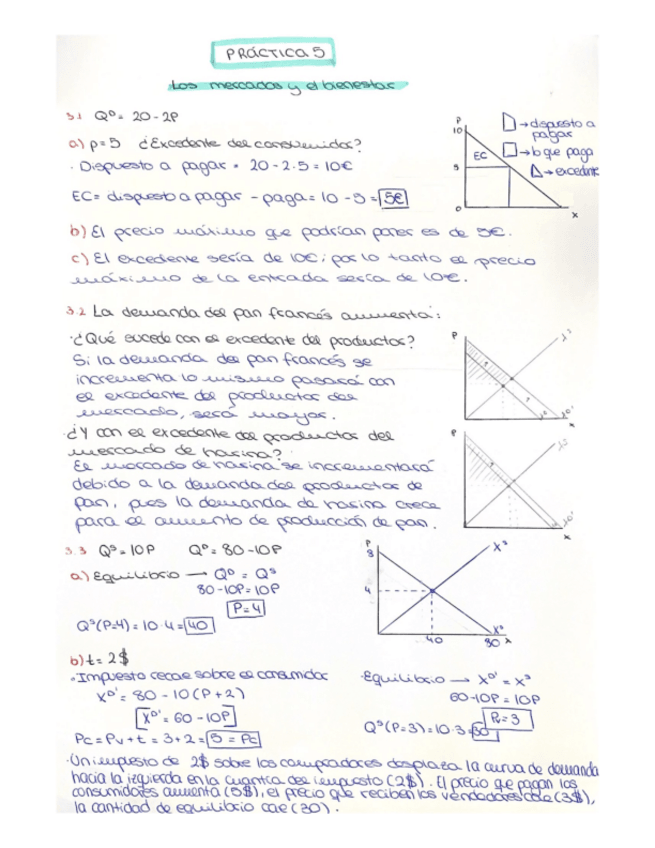 PRÁCTICA 5
Los mercados y el bienestar
3.1 Qᴰ = 20 - 2P
a) p=5 ¿Excedente del consumidor?
· Dispuesto a pagar = 20 - 2·5 = 10€
EC = dispuesto a pagar - paga = 10 - 5 = 5€
P
10
5
0
EC
x
→ dispuesto a pagar
→ lo que paga
→ excedente
b) El precio máximo que podrían poner es de 5€.
c) El excedente sería de 10€; por lo tanto el precio
máximo de la entrada sería de 10€.
3.2 La demanda del pan francés aumenta:
·¿Qué sucede con el excedente del productos?
Si la demanda del pan francés se
incrementa lo mismo pasará con
el excedente del productos del
mercado, será mayor.
·¿Y con el excedente del productos del
mercado de harina?
El mercado de harina se incrementará
debido a la demanda del productos de
pan, pues la demanda de harina crece
para el aumento de producción de pan.
P
x
P
x
3.3 Qˢ = 10P Qᴰ = 80 - 10P
a) Equilibrio → Qᴰ = Qˢ
80 - 10P = 10P
P = 4
Qˢ(P=4) = 10·4 = 40
P
8
4
40
80 x
Xˢ
b) t = 2$
· Impuesto recae sobre el consumidor
Xᴰ' = 80 - 10(P+2)
Xᴰ' = 60 - 10P
Pc = Pv + t = 3 + 2 = 5 = Pc
·Equilibrio → Xᴰ' = Xˢ
60 - 10P = 10P
Pv = 3
Qˢ(P=3) = 10·3 = 30
·Un impuesto de 2$ sobre los compradores desplaza la curva de demanda
hacia la izquierda en la cuantía del impuesto (2$). El precio que pagan los
consumidores aumenta (5$), el precio que reciben los vendedores cae (3$),
la cantidad de equilibrio cae (30).